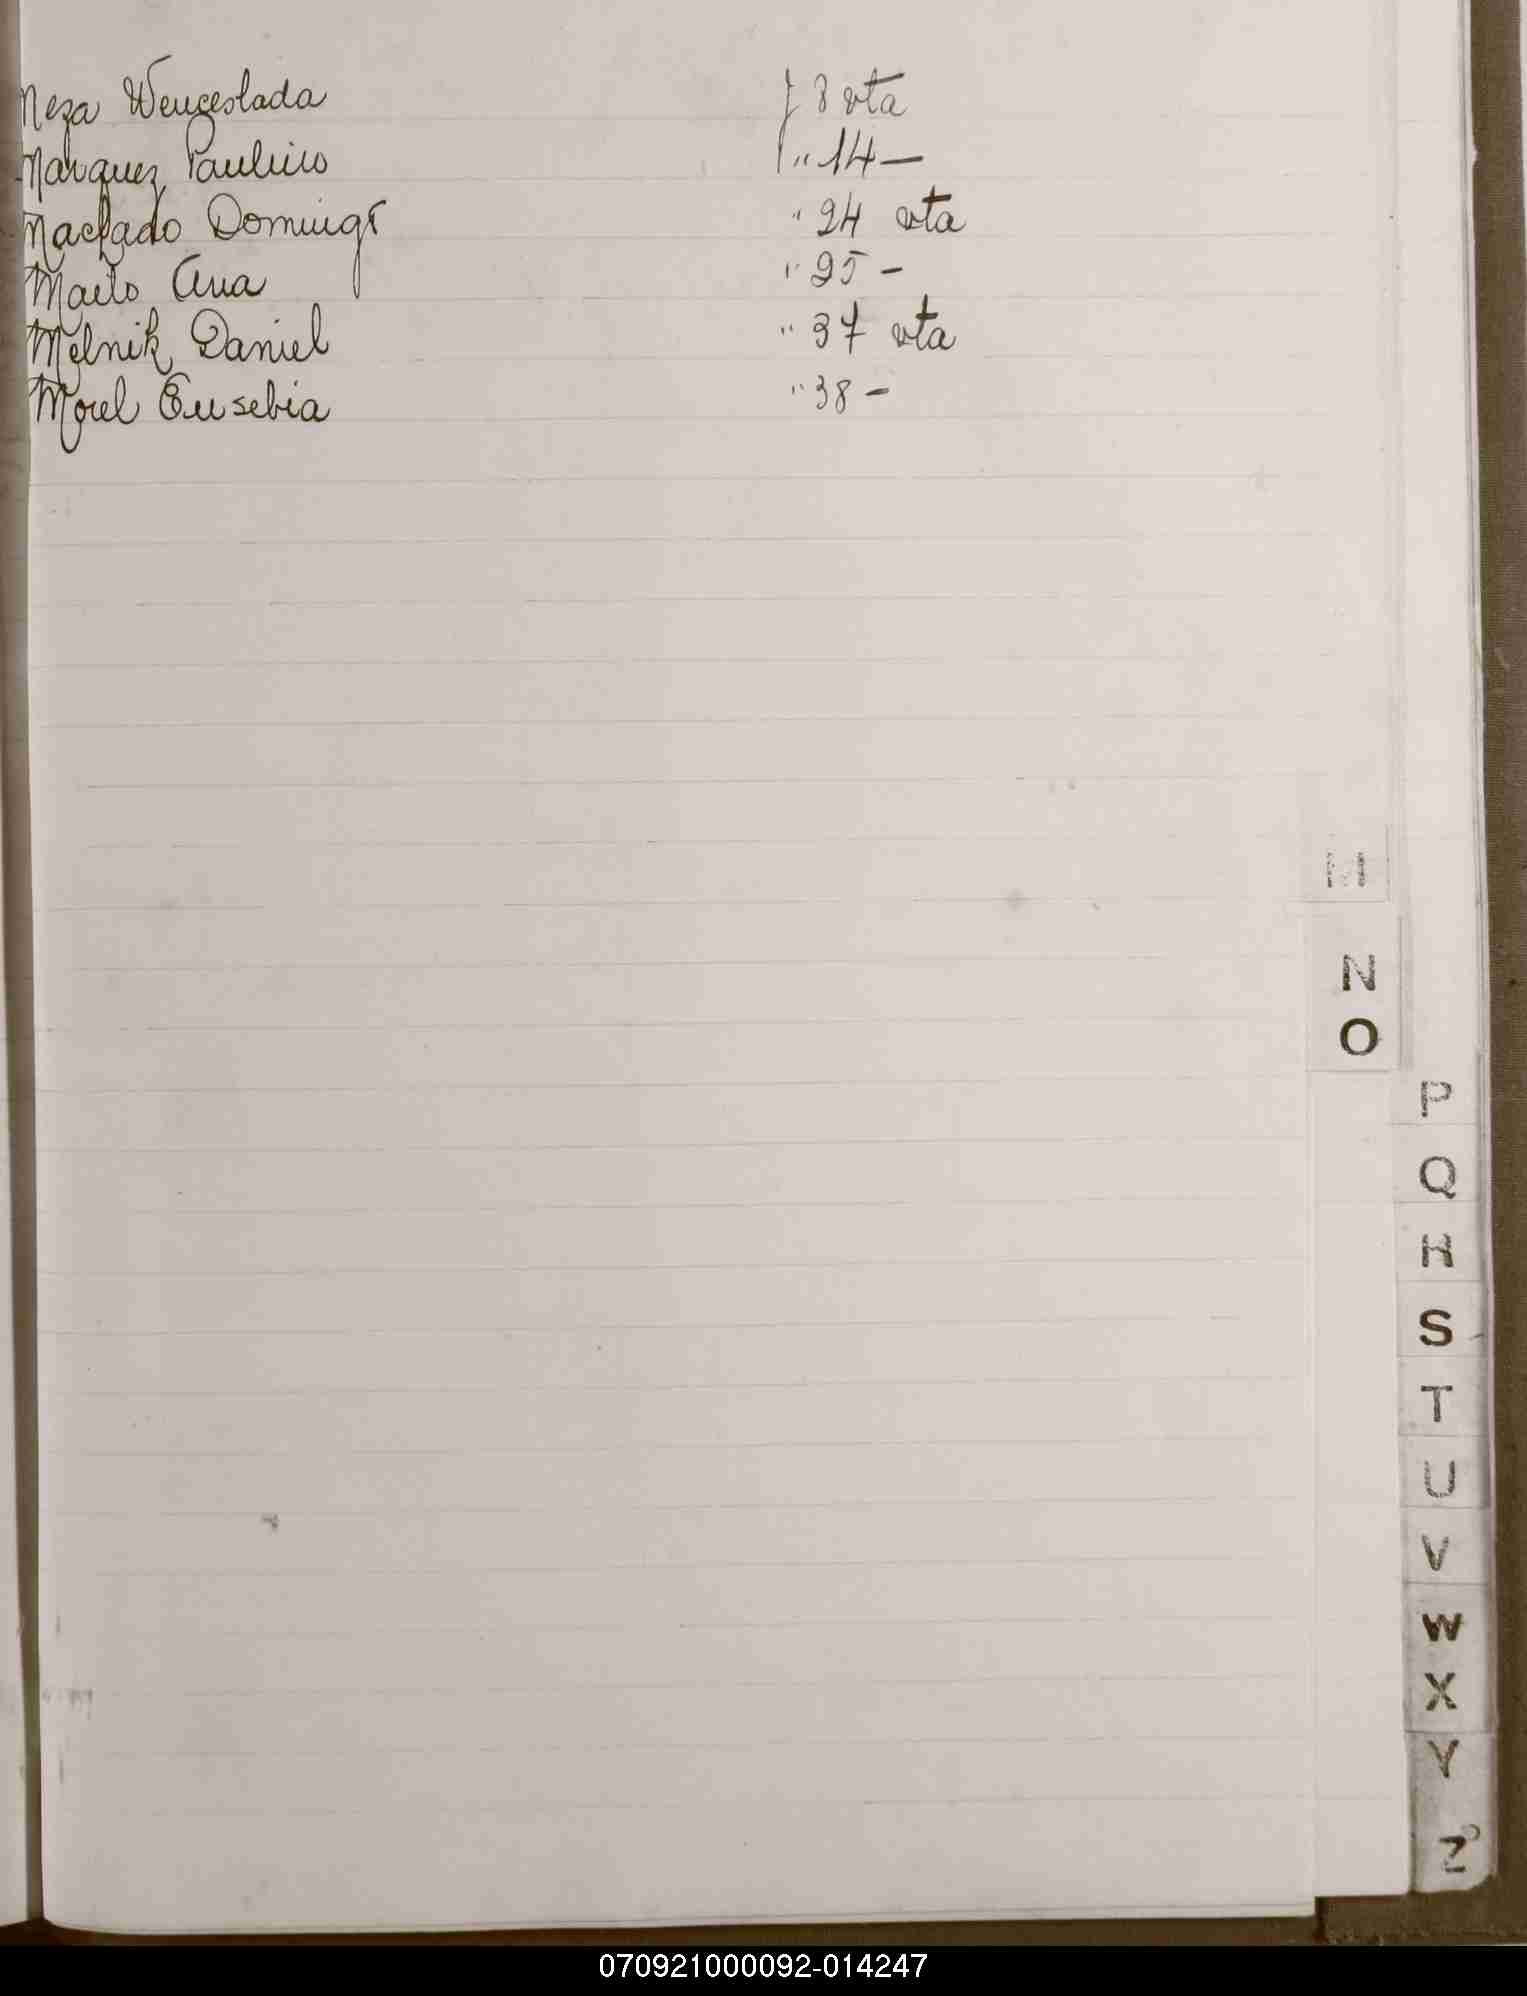 Meza Wenceslada f 8 vta
Marquez Paulino " 14 —
Machado Domingª " 24 vta
Ana " 25 -
Melnik Daniel " 37 vta
Morel Eusebia " 38 -
N
O
P
Q
R
S
T
U
V
W
X
Y
Z
070921000092-014247